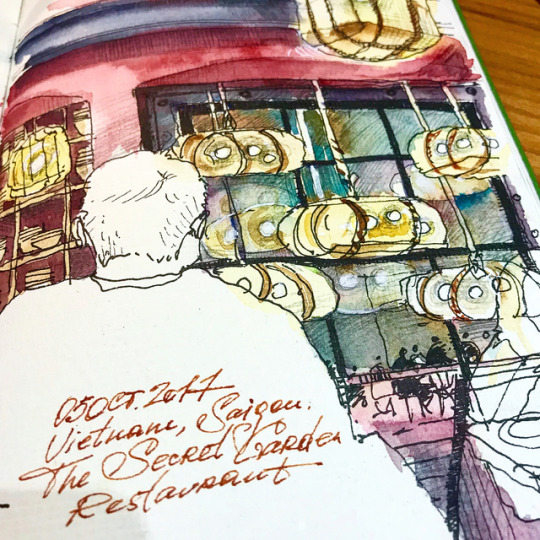 05 OCT. 2017
Vietnam, Saigon.
The Secret Garden
Restaurant